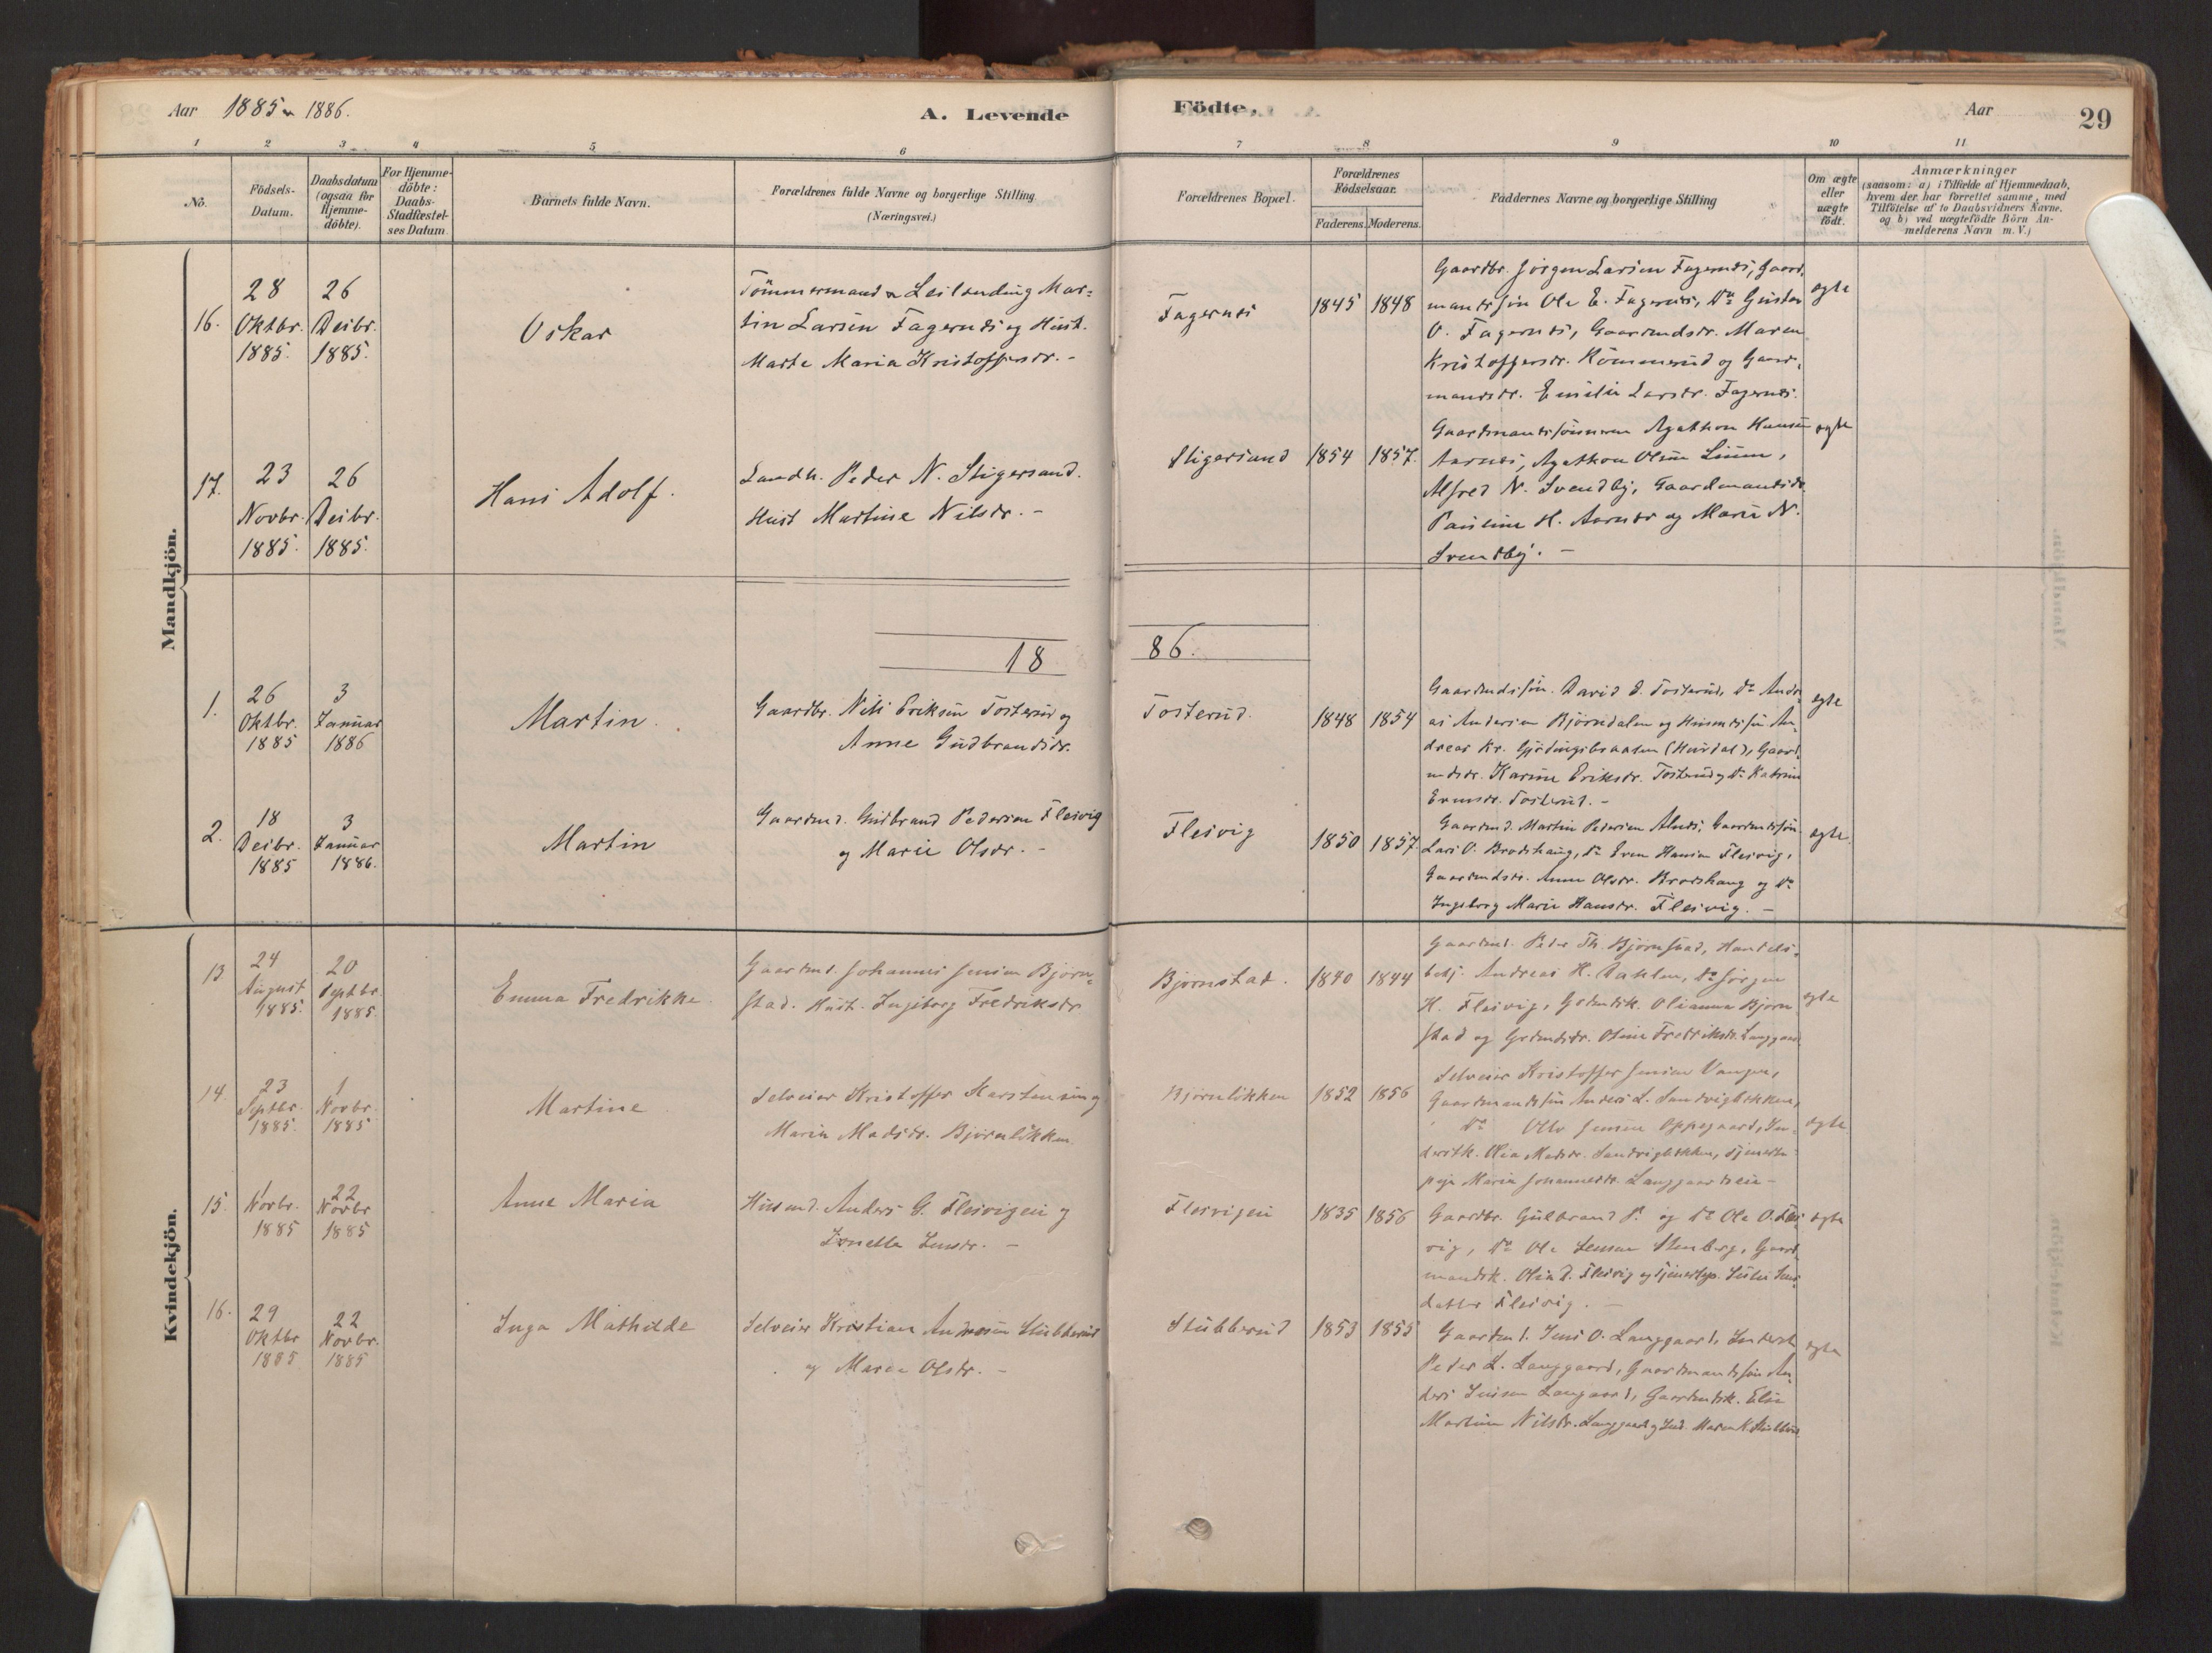 Aar 1885 & 1886.
A. Levende
Födte.
Aar
29
1 2 3 4 5 6 7 8 9 10 11
No.
Födsels-
Datum.
Daabsdatum
(ogsaa for
Hjemme-
döbte).
For Hjemme-
döbte:
Daabs-
Stadfæstel-
ses Datum
Barnets fulde Navn.
Forældrenes fulde Navne og borgerlige Stilling
(Næringsvei.)
Forældrenes Bopæl.
Forældrenes
Födselsaar.
Faderens. Moderens.
Faddernes Navne og borgerlige Stilling
Om ægte
eller
uægte
födt.
Anmærkninger
(saasom: a) i Tilfælde af Hjemmedaab,
hvem der har forrettet samme, med
Tilföielse af to Daabsvidners Navne.
og b) ved uægtefödte Börn An-
melderens Navn m.V.)
Mandkjön.
16.
28
Oktbr.
1885.
26
Desbr.
1885.
Oskar
Tömmermand & Leilending Mar-
tin Larsen Fagernæs og Hust.
Marte Maria Kristoffersdr. -
Fagernæs
1845 1848
Gaardbr. Jörgen Larsen Fagernæs, Gaard-
mandssön Ole E. Fagernæs, Do Gustav
O. Fagernæs, Gaardmdsdr. Maren
Kristoffersdr. Hömmerud og Gaard-
mandsdr. Emilie Larsdr. Fagernæs.
ægte
17.
23
Novbr.
1885.
26
Desbr.
1885.
Hans Adolf.
Landh. Peder N. Stigersand.
Hust Martine Nilsdr. -
Stigersund
1854 1857.
Gaardmandssönnerne Agathon Hansen
Aarnæs, Agathon Olsen Linne,
Alfred N. Svendby, Gaardmandsdr.
Pauline H. Aarnæs og Marie N.
Svendby. -
ægte
18 86.
1.
26
Oktbr.
1885
3
Januar
1886
Martin.
Gaardbr. Nils Eriksen Tosterud og
Anne Gudbrandsdr.
Tosterud.
1848 1854
Gaardmdssön. David D. Tosterud, Do Andre-
as Andersen Björndalen og Husmdssön An-
dreas Kr. (Hurdal), Gaard-
mdsdr. Karine Eriksdr. Tosterud og Do Katrine
Evensdr. Tosterud. -
ægte
2.
18
Desbr.
1885
3
Januar
1886.
Martin
Gaardmd. Gudbrand Pedersen Flesvig
og Marie Olsdr. -
Flesvig
1850 1857.
Gaardmd. Martin Pedersen Alnæs, Gaardmdssön
Lars O. Brodshaug, Do Even Hansen Flesvig,
Gaardmdsdr. Anne Olsdr. Brodshaug og Do
Ingeborg Marie Hansdr. Flesvig. -
ægte.
Kvindekjön.
13
24
August
1885.
20
Septbr.
1885.
Emma Fredrikke.
Gaardmd. Johannes Jensen Björn-
stad. Hust. Ingeborg Fredriksdr
Bjørnstad.
1840 1844
Gaardmd. Peder Th. Björnstad, Handels-
betj. Andreas H. Dahlen, Do Jörgen
H. Flesvig, Gdmdsk. Olianna Bjørn-
stad og Grdmdsdr. Oline Fredriksdr. Langgaard
ægte
14.
23
Septbr.
1885.
1
Novbr.
1885
Martine
Selveier Kristoffer Karstensen og
Maria Madsdr. Björnlökken.
Bjørnlökken
1852 1856
Selveier Kristoffer Jensen Vangen,
Gaardmandssön Anders L. Sandviglökken,
Do Otto Jensen Oppegaard, In-
derstk. Olia Madsdr. Sandviglökken, Tjeneste-
pige Maria Johannesdr. Langgaardseie -
ægte
15.
1
Novbr.
1885
22
Novbr
1885
Anne Maria
Husmd. Anders G. Flesvigeie og
Jensdr. -
Flesvigeie
1835 1856
Gaardbr. Gulbrand P. og Do Ole O. Fles-
vig, Do Ole Jensen Stenberg, Gaard-
mandsk. Olia D. Flesvig og Tjenestep. Jens-
datter Flesvig. -
ægte
16.
29
Oktbr
1885
22
Novbr.
1885
Inga Mathilde
Selveier Kristian Andersen Stubberud
og Maren Olsdr. -
Stubberud
1853 1855
Gaardmd. Jens O. Langgaard, Inderst
Peder L. Langgaard, Gaardmandssön An-
ders Jensen Langaard, Gaardmdsk. Elise
Martine Nilsdr. Langgaard og Maren K. Stubberud
ægte